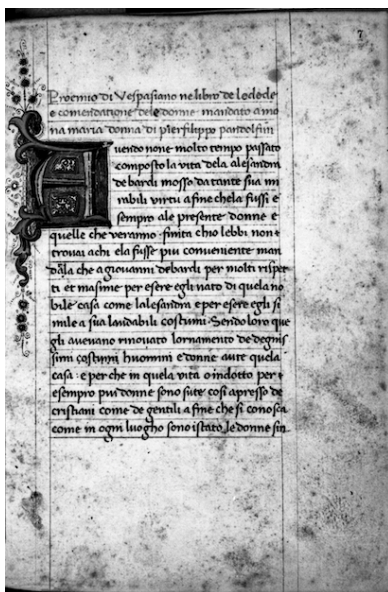 7
Proemio di Vespasiano ne libro de le lode
e comendatione dele donne mandato a mo
na maria donna di pierfilippo pandolfini
Auendo none molto tempo passato
composto la vita dela alesandra
de bardi mosso da tante sua mi
rabili virtu a fine chela fussi e
sempro ale presente donne e
quelle che veranno. finita chio lebbi non e
trovai a chi ela fusse piu conveniente man
dala che a giovanni de bardi per molti rispe
ti et masime per esere egli nato di quela no
bile casa come lalesandra e per esere egli si
mile a sua laudabili costumi. Sendo loro que
gli avevano rinovato lornamento de degnis
simi costumi huomini e donne avte quela
casa: e per che in quela vita o indotto per e
esempro piu donne sono sute cosi apresso de
cristiani come de gentili a fine che si conosca
come in ogni luogho sono istato le donne sin